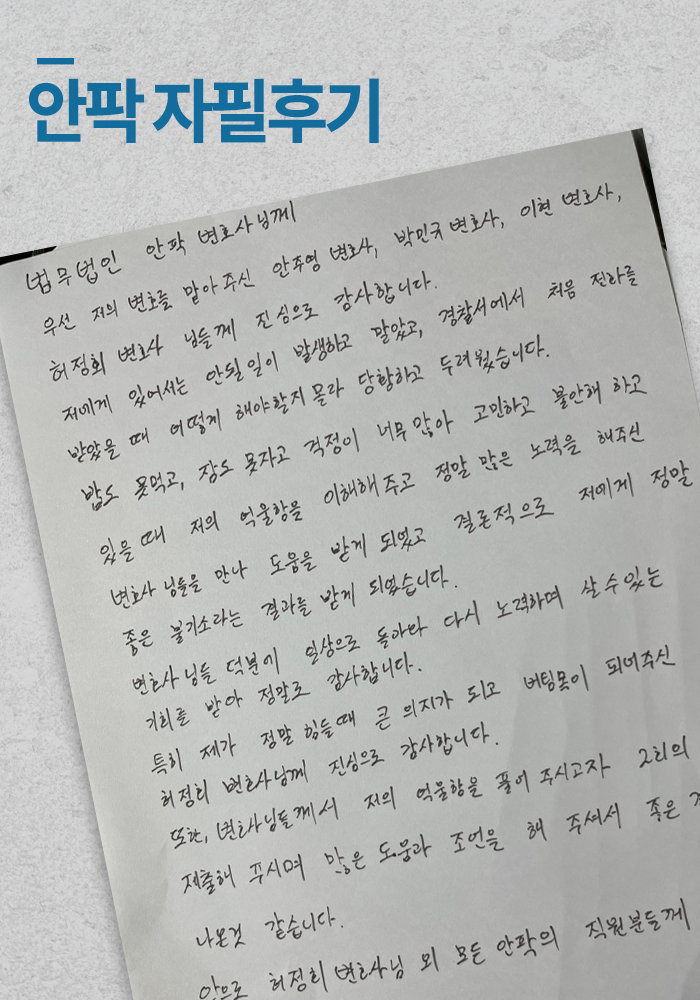 안팍 자필후기
법무법인 안팍 변호사님께
우선 저의 변호를 맡아주신 안주영 변호사, 박민규 변호사, 이현 변호사,
허정회 변호사 님들께 진심으로 감사합니다.
저에게 있어서는 안될일이 발생하고 말았고, 경찰서에서 처음 전화를
받았을 때 어떻게 해야할지 몰라 당황하고 두려웠습니다.
밥도 못먹고, 잠도 못자고 걱정이 너무 많아 고민하고 불안해 하고
있을때 저의 억울함을 이해해주고 정말 많은 노력을 해주신
변호사님들을 만나 도움을 받게 되었고 결론적으로 저에게 정말
좋은 불기소라는 결과를 받게 되었습니다.
변호사님들 덕분에 일상으로 돌아와 다시 노력하며 살 수 있는
기회를 받아 정말로 감사합니다.
특히 제가 정말 힘들때 큰 의지가 되고 버팀목이 되어주신
허정회 변호사님께 진심으로 감사합니다.
또한, 변호사님들께서 저의 억울함을 풀어주시고자 2회의
제출해 주시며 많은 도움과 조언을 해 주셔서 좋은
나온것 같습니다.
앞으로 허정회 변호사님 외 모든 안팍의 직원분들께